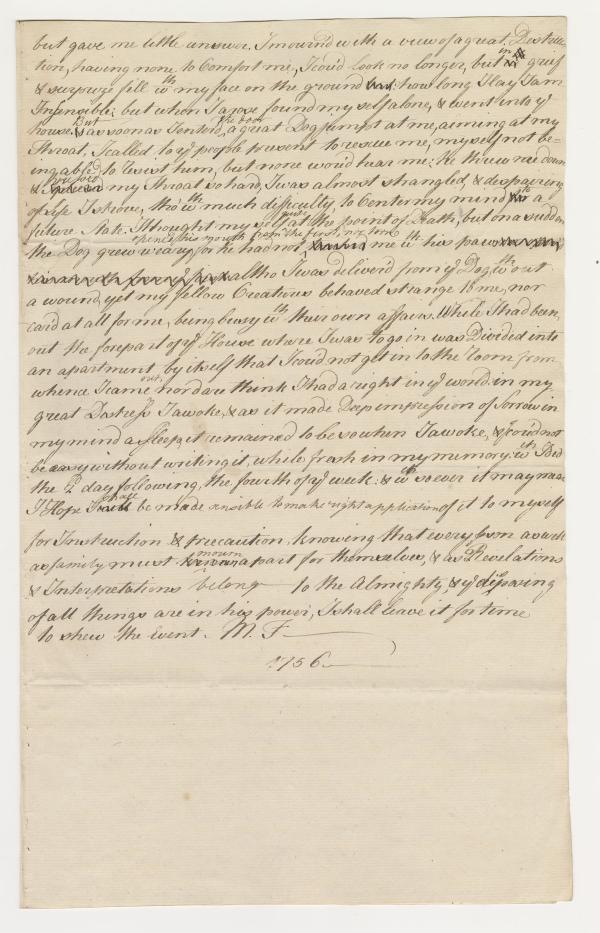 but gave me little answer. I mourn'd with a view of a great Destruc
tion, having none to Comfort me, I cou'd look no longer, but in grief
& surprize fell wth my face on the ground how long I lay I am
Insensible; but when I arose found my self alone, & went into ye
house. But as soon as I enterd the door a great Dog jumpt at me, aiming at my
throat. I called to ye people present to rescue me, my self not be=
ing able to resist him, but none wou'd hear me: he threw me down
& pressed my throat so hard, I was almost strangled, & despairing
of life I strove, tho' wth much difficulty, to Center my mind to a
future State. I thought my self quite at the point of Death, but on a sudden
the Dog grew weary open'd his mouth from the first, for he had not me wth his paw
altho I was deliver'd from ye Dog wth out
a wound, yet my fellow Creatures behaved strange to me, nor
car'd at all for me, being beusy wth their own affairs. While I had been
out the forepart of ye House where I was to go in was Divided into
an apartment by itself that I coud not get in to the room from
whence I came out, nor dare think I had a right in ye world. in my
great Distress I awoke, & as it made Deep impression of Sorrow in
my mind a sleep, it remained to be so when I awoke, & I cou'd not
be easy without writing it, while fresh in my memory: wch I did
the 2d day following, the fourth of ye week: & wt soever it may mean
I Hope I shall be made sensible to make right application of it to myself
for Instruction & precaution, knowing that every as well
as family must mourn apart for themselves, & as Revelations
& Interpretations belong to the Almighty, & ye disposing
of all things are in his power, I shall leave it for time
to shew the Event. M. F
1756